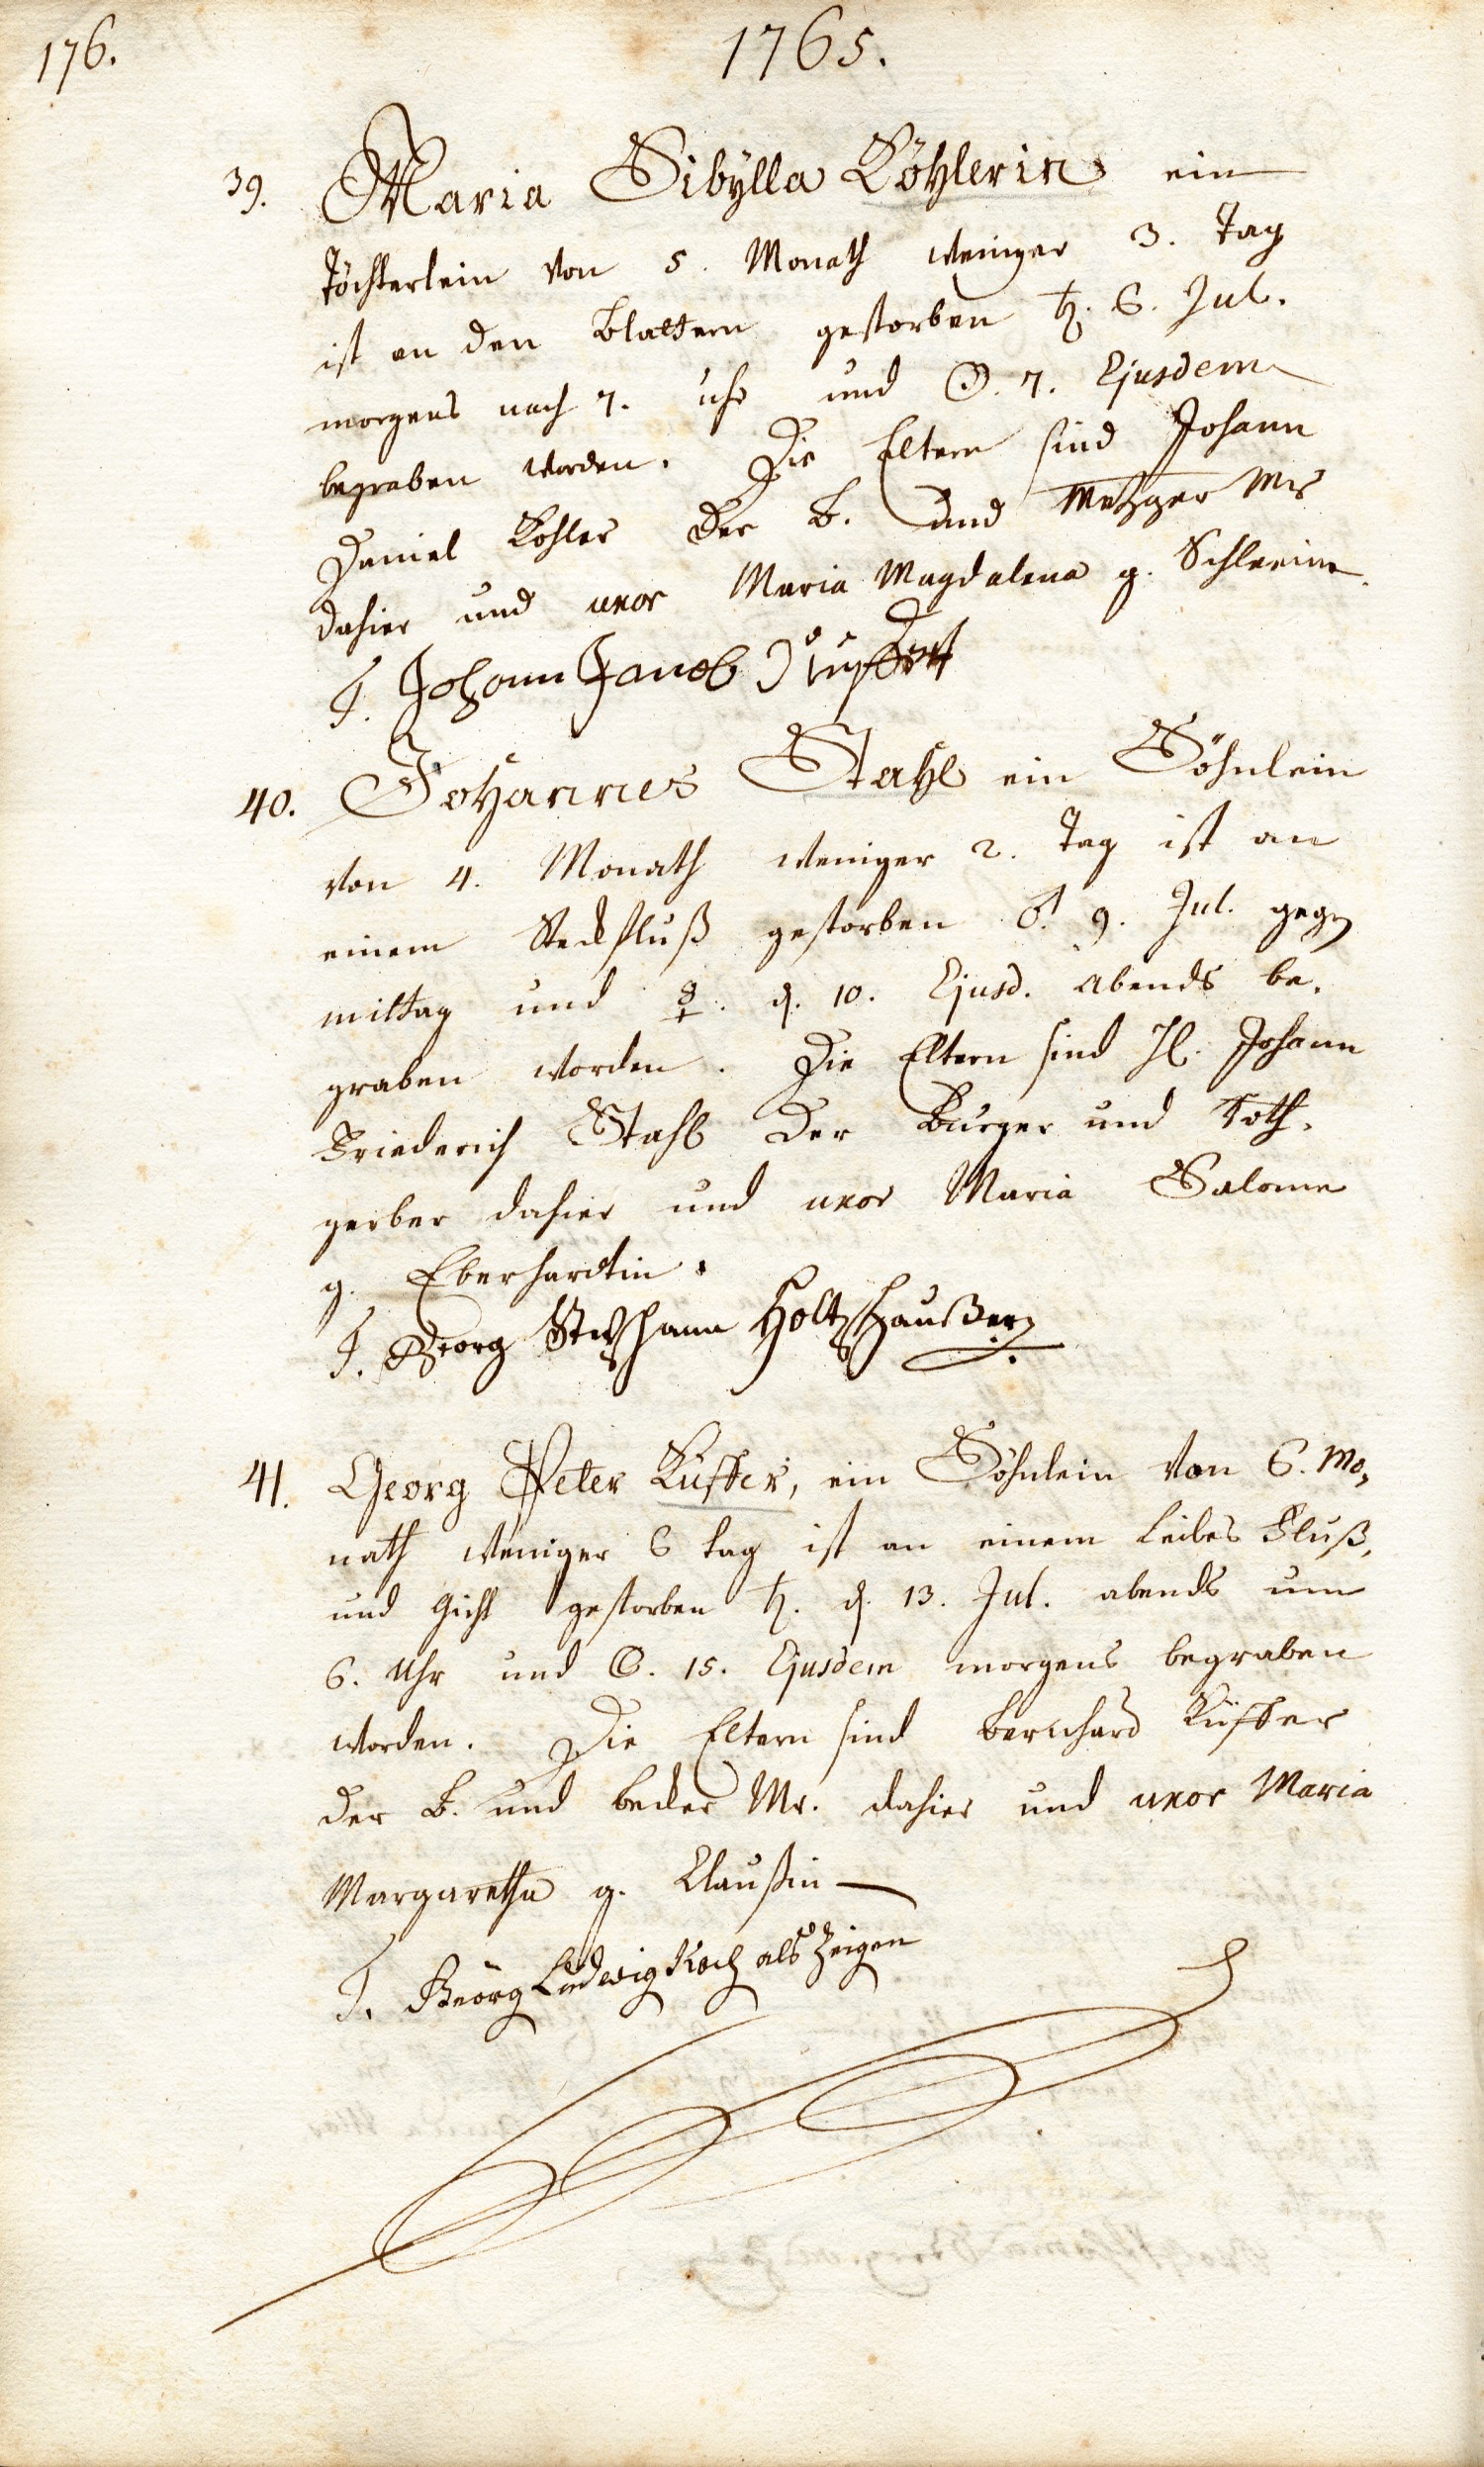 176.
1765.
39. Maria Sibÿlla Köhlerin ein
Töchterlein von 5. Monath weniger 3. Tag
ist an den Blattern gestorben ♄. 6. Jul.
morgens nach 7. uhr und ☉. 7. Ejusdem
begraben worden. Die Eltern sind Johann
Daniel Kohler der B. und Metzger Mr
dahier und uxor Maria Magdalena g. Schleeinn.
T. Johann Jacob
40. Johannes Stahl ein Söhnlein
von 4. Monath weniger 2. Tag ist an
einem Steckfluß gestorben ♂. 9. Jul. gegen
mittag und ☿. d. 10. Ejusd. abends be-
graben worden. Die Eltern sind H. Johann
Friederich Stahl der Burger und Roth-
gerber dahier und uxor Maria Salome
g. Eberhardtin.
T. Georg Holtzhaußer
41. Georg Peter Küffer, ein Söhnlein von 6. Mo-
nath weniger 6 tag ist an einem Leibes Fluß,
und Gicht gestorben ♄. d. 13. Jul. abends um
6. Uhr und 15. Ejusdem morgens begraben
worden. Die Eltern sind Bernhard Küffer
der B. und Beder Mr. dahier und uxor Maria
Margaretha g. Claußin
T. Georg Ludwig Koch als Zeigen